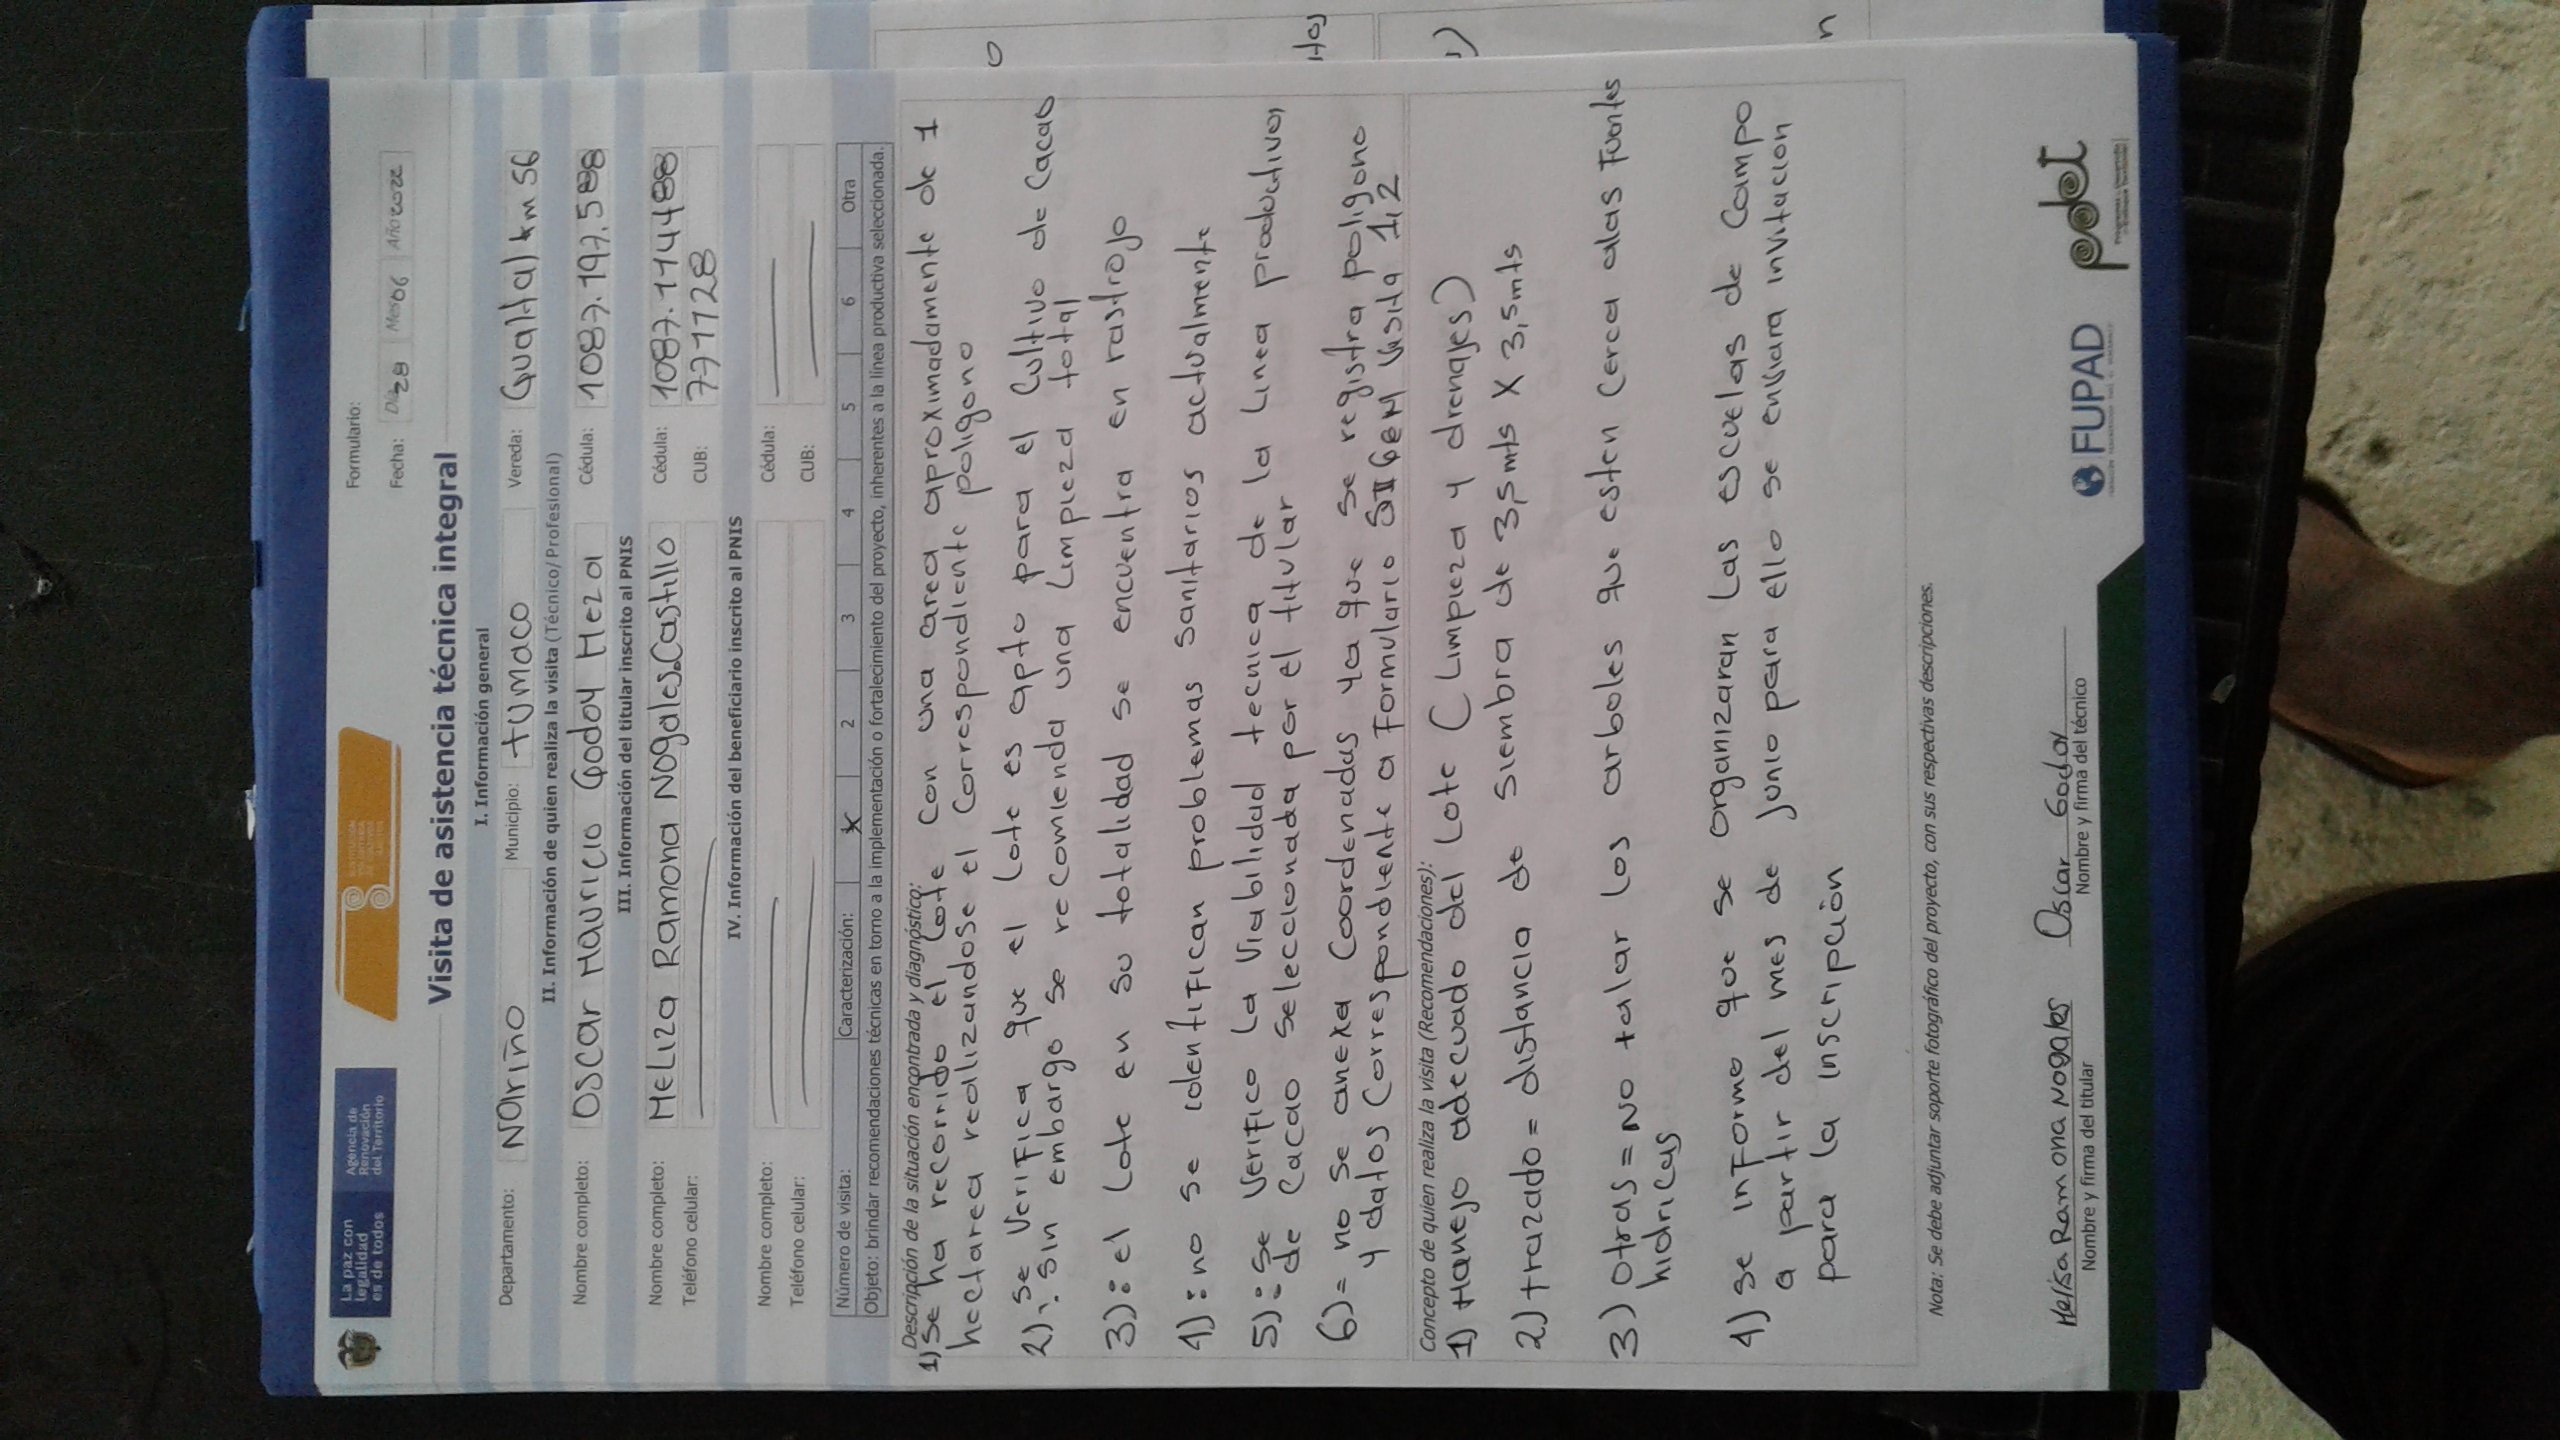 La paz con
legalidad
es de todos
Agencia de
Renovación
del Territorio
Formulario:
Fecha: Día 28 Mes 06 Año 2022
Visita de asistencia técnica integral
I. Información general
Departamento: Nariño Municipio: tumaco Vereda: Gualtal km 56
II. Información de quien realiza la visita (Técnico/Profesional)
Nombre completo: Oscar Mauricio Godoy Meza Cédula: 1087.197.588
III. Información del titular inscrito al PNIS
Nombre completo: Meliza Ramona Nogales Castillo Cédula: 1087.114488
Teléfono celular: CUB: 771128
IV. Información del beneficiario inscrito al PNIS
Nombre completo: Cédula:
Teléfono celular: CUB:
Número de visita: Caracterización: X 2 3 4 5 6 Otra
Objeto: brindar recomendaciones técnicas en torno a la implementación o fortalecimiento del proyecto, inherentes a la línea productiva seleccionada.
Descripción de la situación encontrada y diagnóstico:
1) se ha recorrido el lote con una area aproximadamente de 1
hectarea realizandose el correspondiente poligono
2): se verifica que el lote es apto para el cultivo de cacao
sin embargo se recomienda una limpieza total
3): el lote en su totalidad se encuentra en rastrojo
4): no se identifican problemas sanitarios actualmente
5): se verifico la viabilidad tecnica de la linea productiva,
de cacao seleccionada por el titular
6)= no se anexa coordenadas ya que se registra poligono
y datos correspondiente a formulario en visita 1,2
Concepto de quien realiza la visita (Recomendaciones):
1) Manejo adecuado del lote (limpieza y drenajes)
2) trazado = distancia de siembra de 3,5 mts X 3,5mts
3) otras = No talar los arboles que esten cerca alas fuentes
hidricas
4) se informo que se organizaran las escuelas de campo
a partir del mes de junio para ello se enviara invitacion
para la inscripción
Nota: Se debe adjuntar soporte fotográfico del proyecto, con sus respectivas descripciones.
Melisa Ramona Nogales
Nombre y firma del titular
Oscar Godoy
Nombre y firma del técnico
FUPAD
pdet